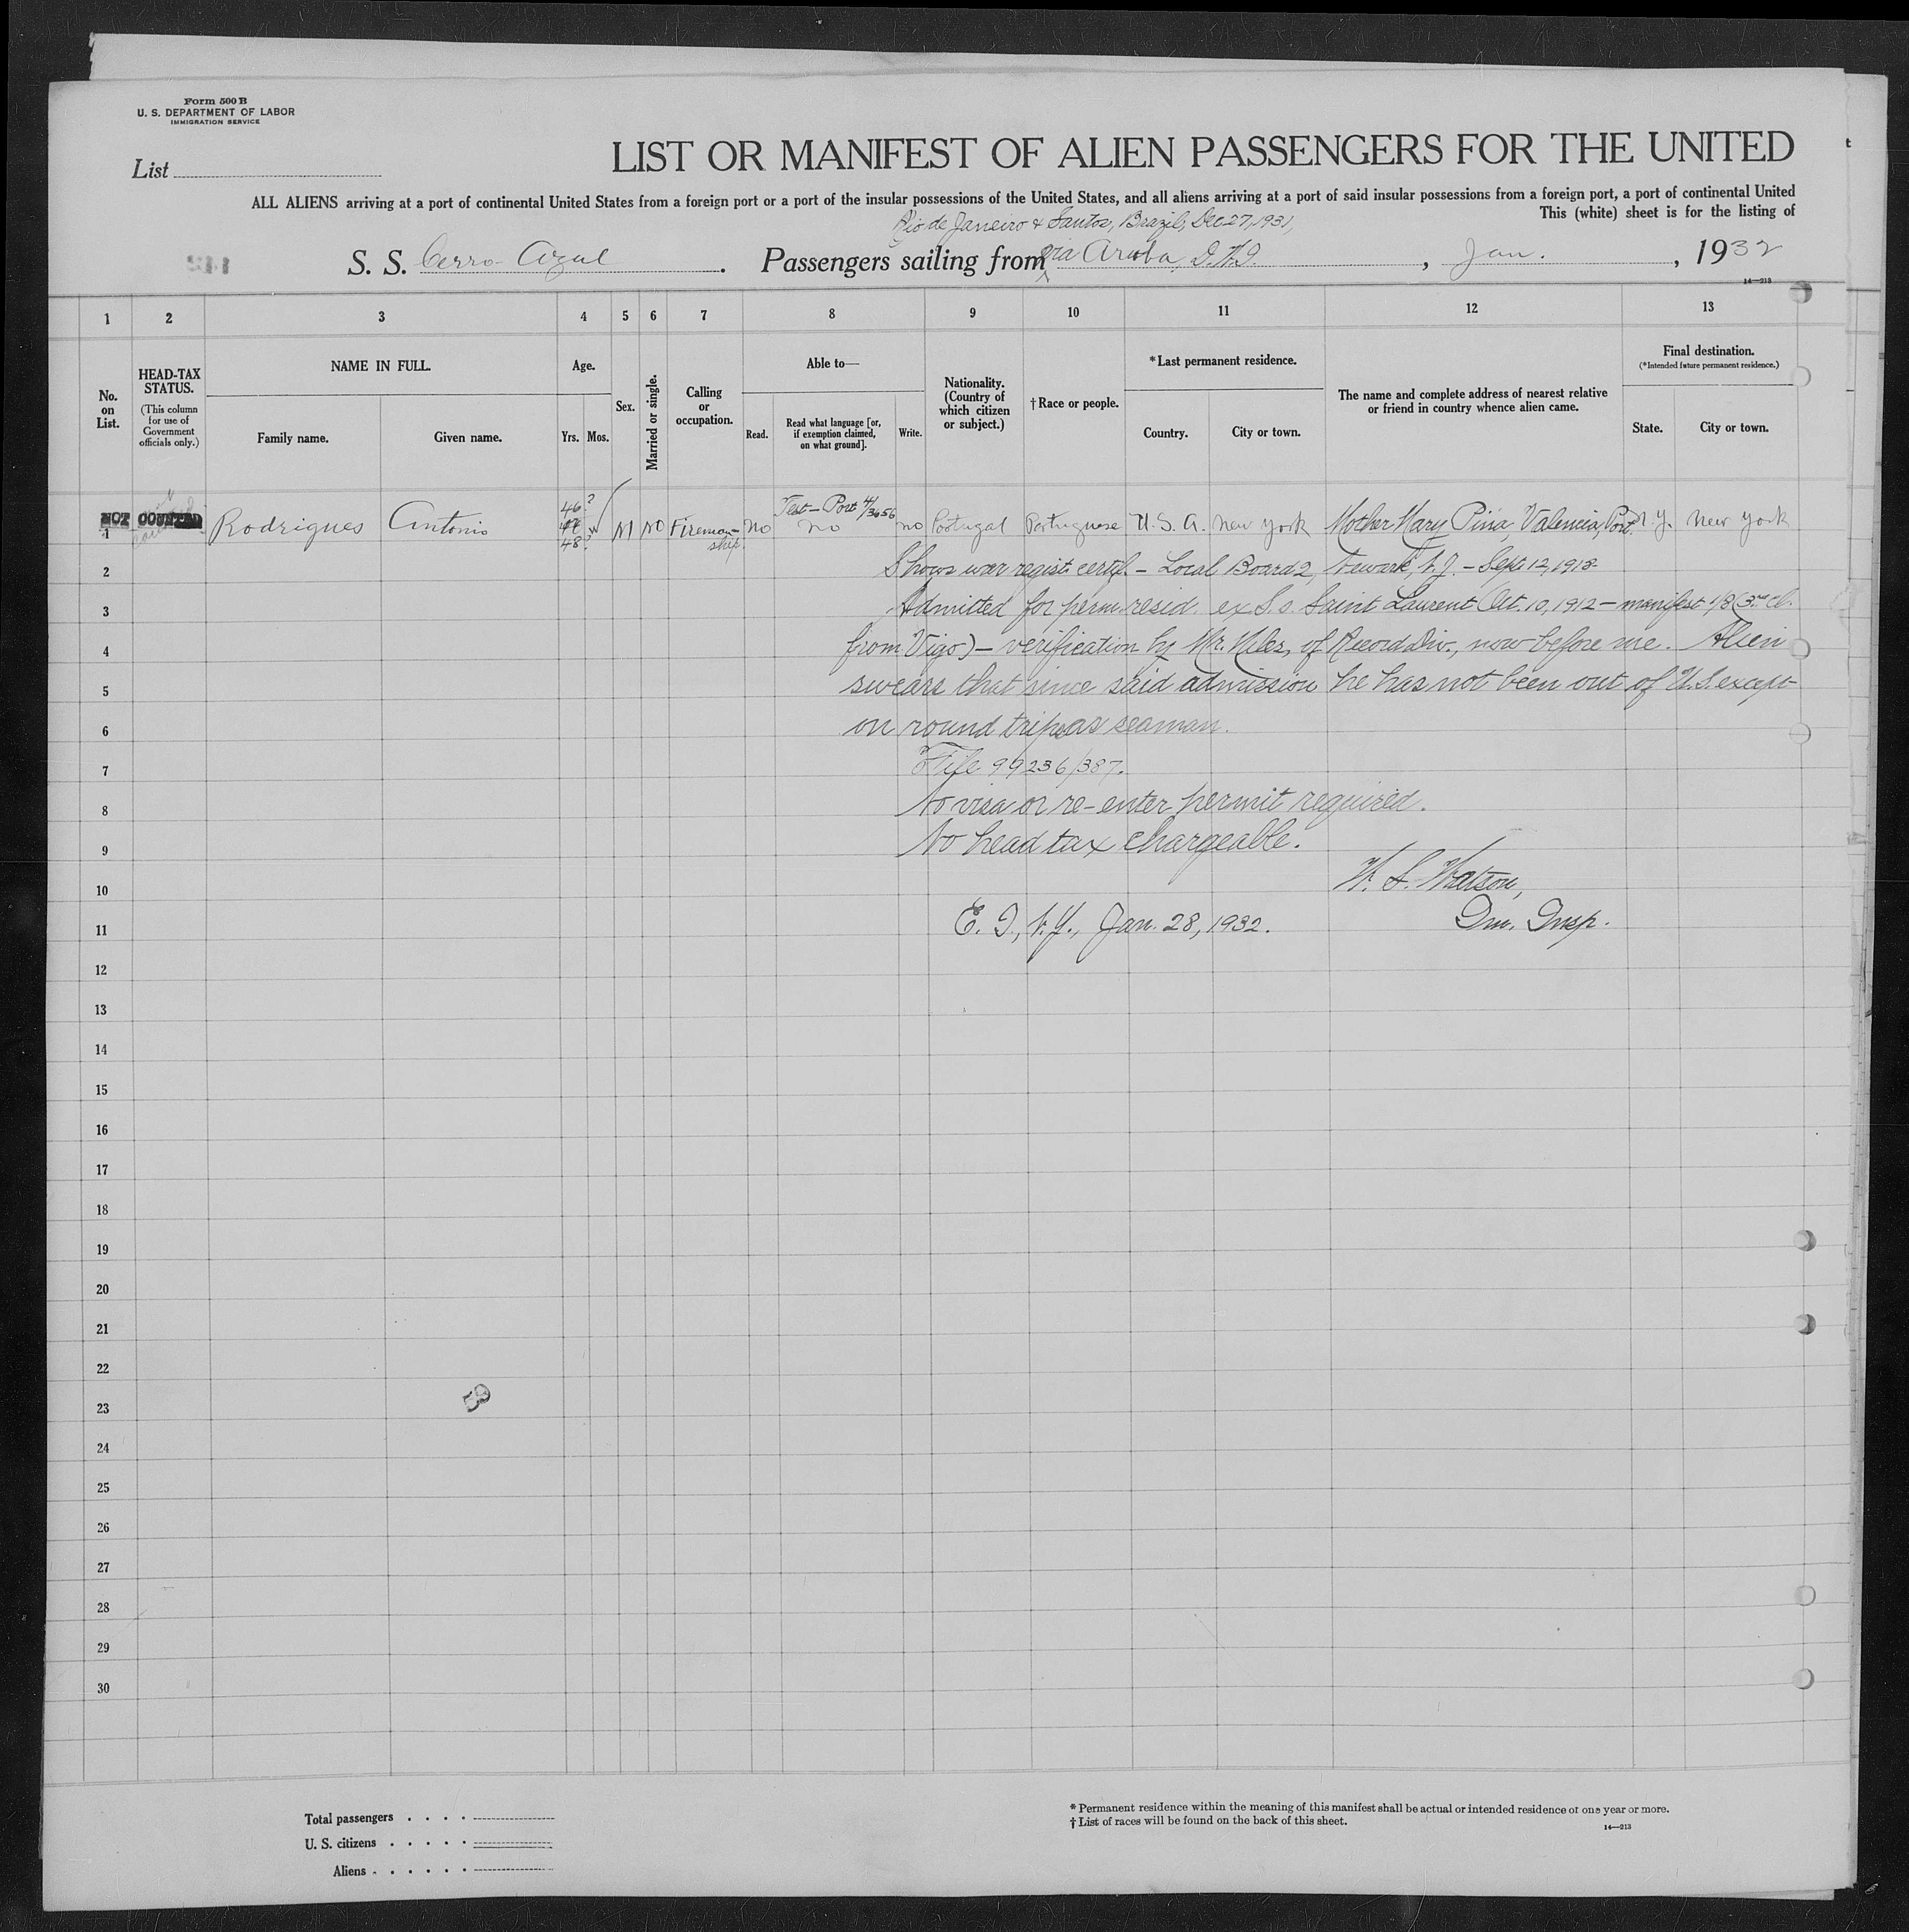 Form 500 B
U. S. DEPARTMENT OF LABOR
IMMIGRATION SERVICE
List
LIST OR MANIFEST OF ALIEN PASSENGERS FOR THE UNITED
ALL ALIENS arriving at a port of continental United States from a foreign port or a port of the insular possessions of the United States, and all aliens arriving at a port of said insular possessions from a foreign port, a port of continental United
This (white) sheet is for the listing of
Rio de Janeiro & Santos, Brazil, Dec 27, 1931,
S. S. Cerro Azul. Passengers sailing from via Aruba, D.W.I., Jan., 1932
14—213
1 2 3 4 5 6 7 8 9 10 11 12 13
No. on List.
HEAD-TAX STATUS.
(This column for use of Government officials only.)
NAME IN FULL.
Family name. Given name.
Age.
Yrs. Mos.
Sex.
Married or single.
Calling or occupation.
Able to—
Read. Read what language [or, if exemption claimed, on what ground]. Write.
Nationality. (Country of which citizen or subject.)
† Race or people.
* Last permanent residence.
Country. City or town.
The name and complete address of nearest relative or friend in country whence alien came.
Final destination.
(*Intended future permanent residence.)
State. City or town.
46?
48?
Test - Port 4/3656
NOT COUNTED
1 Rodrigues Antonio M No Fireman- ship No no no Portugal Portuguese U.S.A. New York Mother Mary Pina, Valencia, Port. N.Y. New York
2 Shows war regist. certif. - Local Board 2, Newark, N.J. - Sept. 12, 1918
3 Admitted for perm. resid. ex S.s. Saint Laurent Oct. 10, 1912 - manifest 1/8 (3rd cl.
4 from Vigo) - verification by Mr. Niles, of Record Div., now before me. Alien
5 swears that since said admission he has not been out of U.S. except
6 on round trips as seaman.
7 File 99236/387.
8 No visa or re-enter permit required.
9 No head tax chargeable.
10 W. S. Watson,
11 E. I., N.Y., Jan. 28, 1932. Im. Insp.
12
13
14
15
16
17
18
19
20
21
22
23
24
25
26
27
28
29
30
Total passengers
U. S. citizens
Aliens
* Permanent residence within the meaning of this manifest shall be actual or intended residence of one year or more.
† List of races will be found on the back of this sheet.
14—213